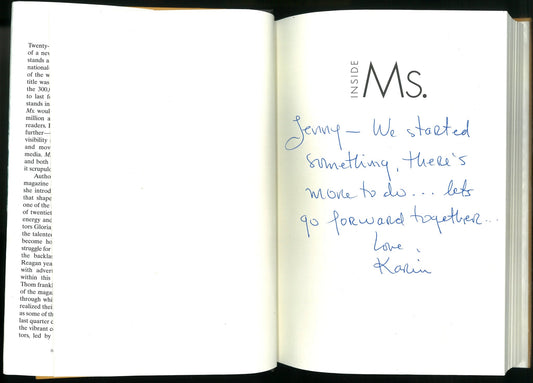 Twenty-
of a nev
stands a
national
of the w
title was
the 300,
to last fo
stands in
Ms. woul
million a
readers. I
further—
visibility
and mov
media. M
and both
it scrupul
Autho
magazine
she introd
that shape
one of the
of twentie
energy and
tors Gloria
the talente
become ho
struggle for
the backla
Reagan yea
with adverti
within this
Thom frankl
of the maga
through whi
realized thei
as some of th
last quarter c
the vibrant c
tors, led by
INSIDE
Ms.
Jenny – We started
something, there's
more to do... lets
go forward together...
Love,
Karin